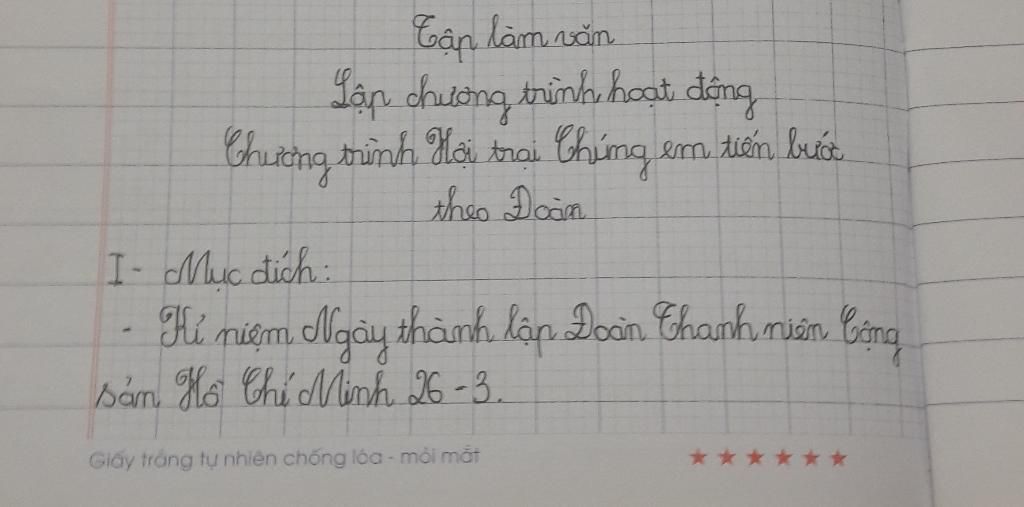 Tập làm văn
Lập chương trình hoạt động
Chương trình Hội trại Chúng em tiến bước
theo Đoàn
I - Mục đích:
- Kỉ niệm Ngày thành lập Đoàn Thanh niên Cộng
sản Hồ Chí Minh 26-3.
Giấy trắng tự nhiên chống lóa - mỏi mắt